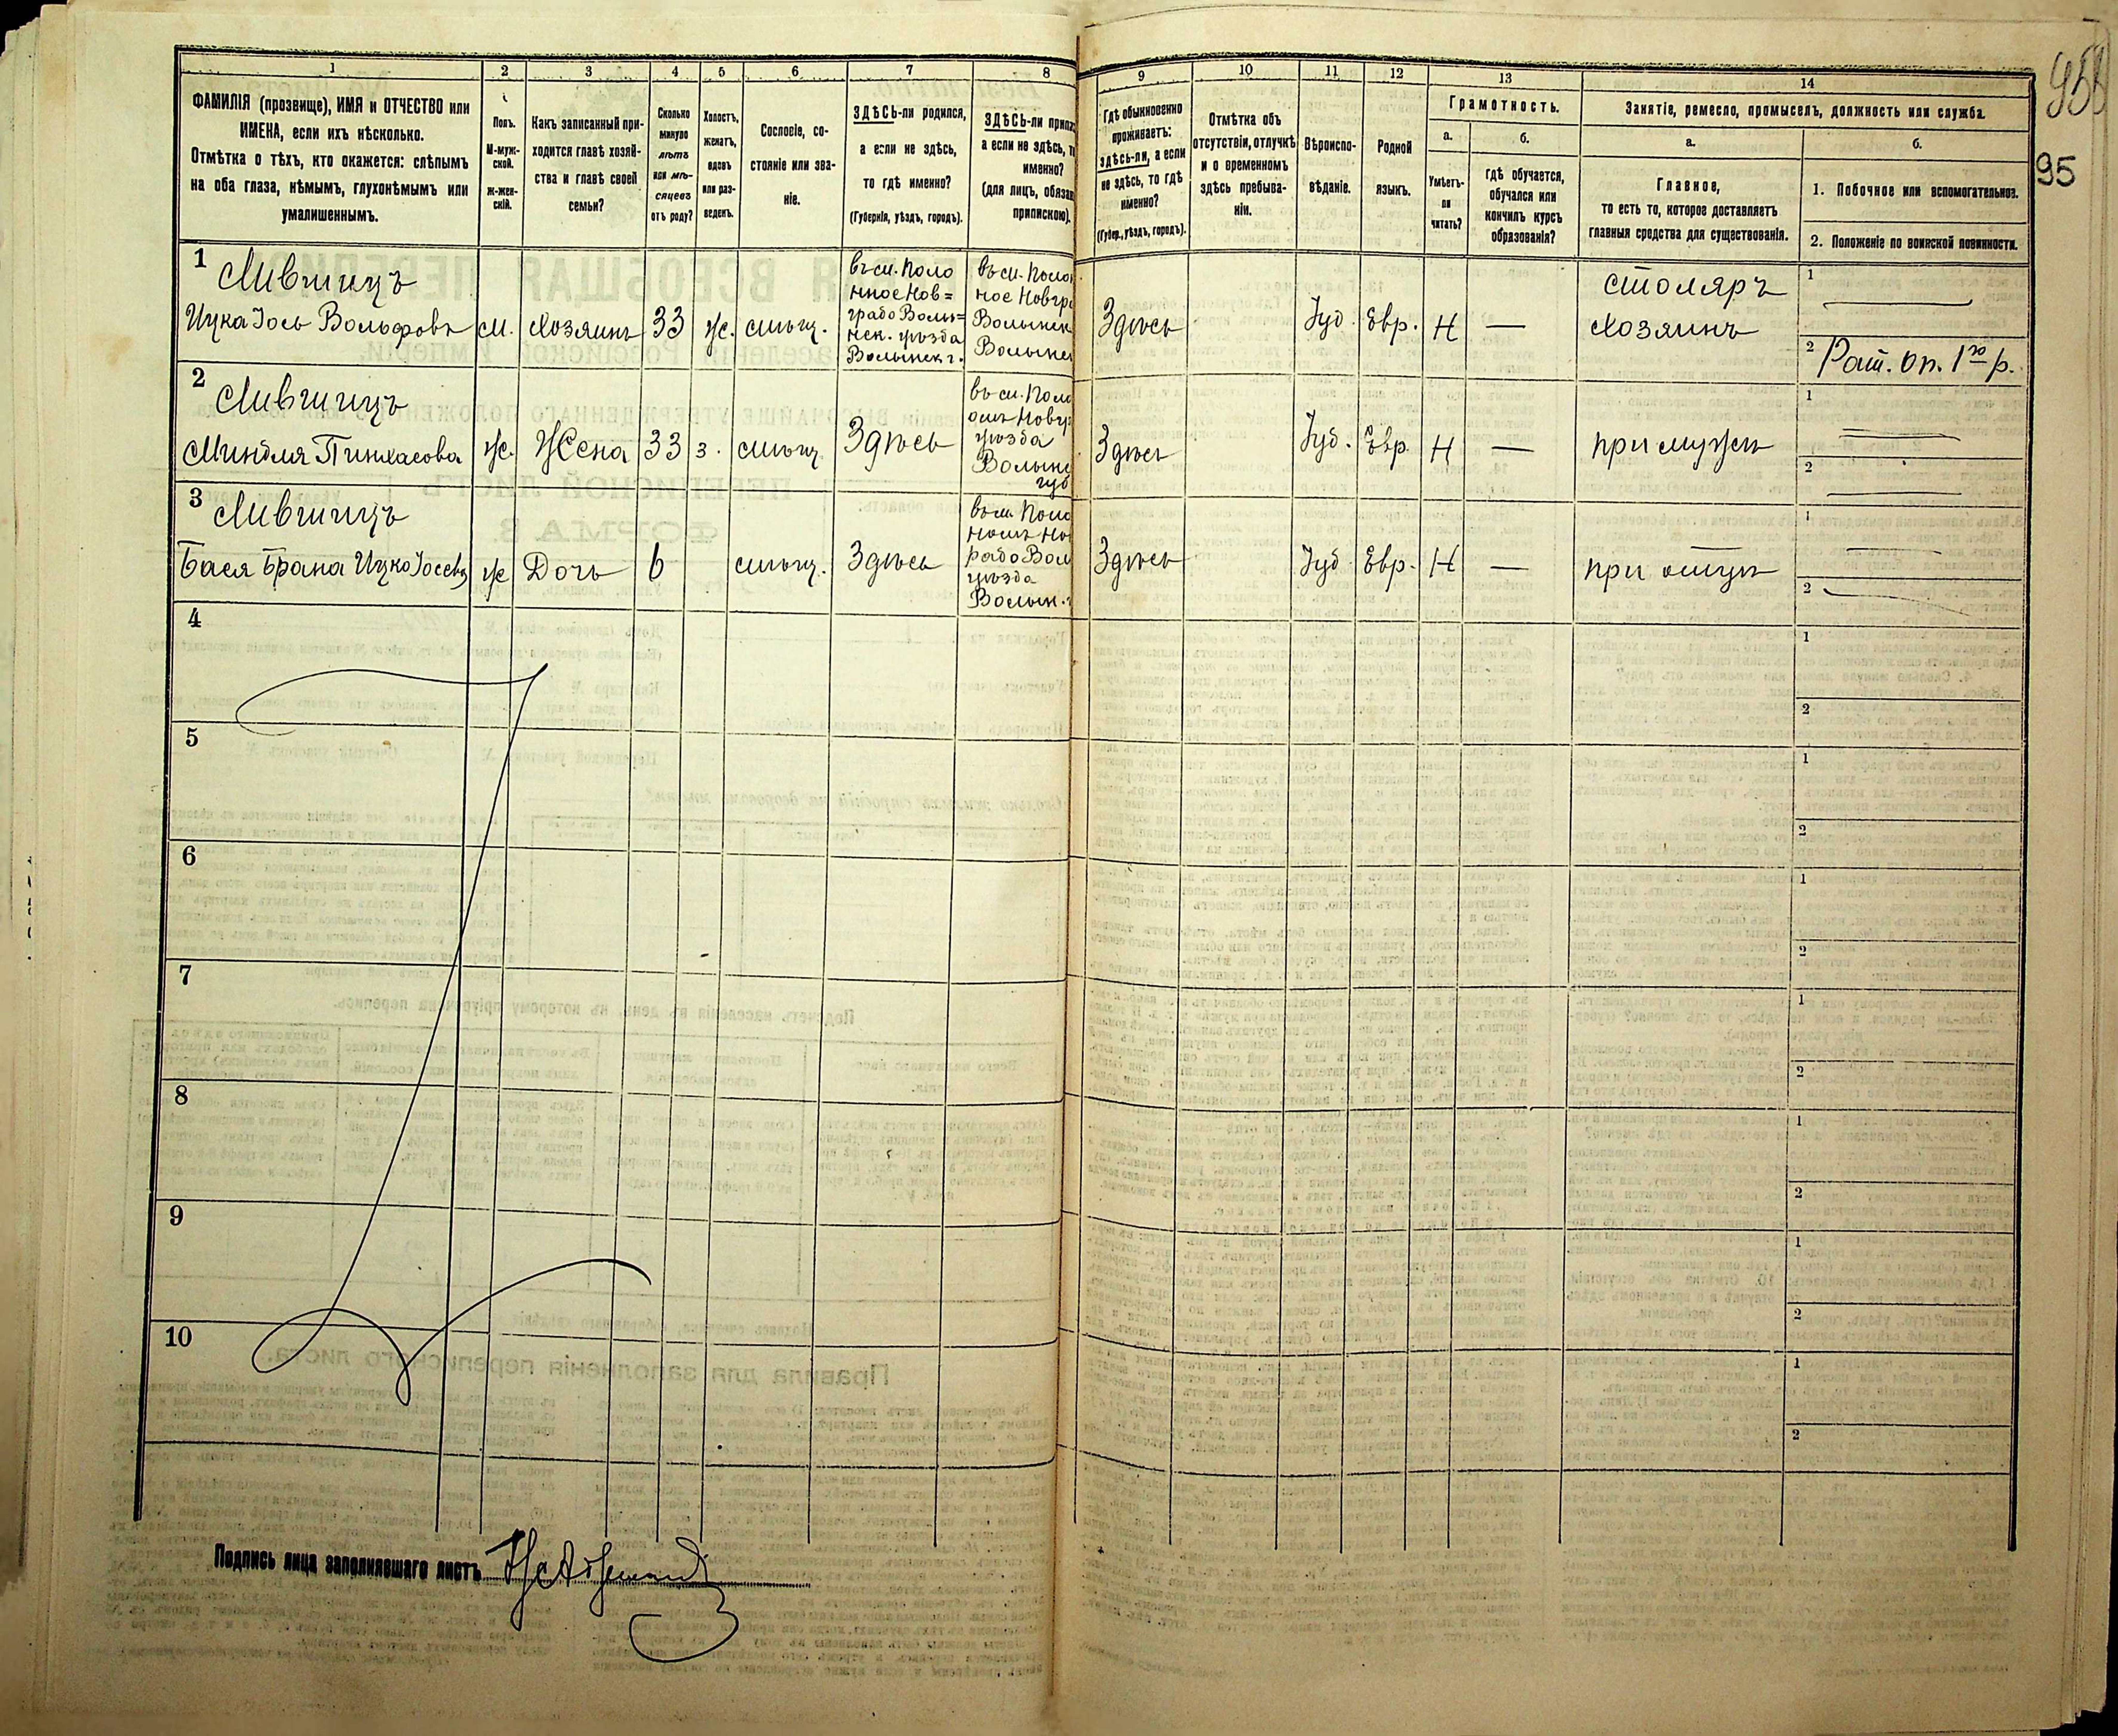 1 2 3 4 5 6 7 8 9 10 11 12 13 14
ФАМИЛІЯ (прозвище), ИМЯ и ОТЧЕСТВО или
ИМЕНА, если ихъ нѣсколько.
Отмѣтка о тѣхъ, кто окажется: слѣпымъ
на оба глаза, нѣмымъ, глухонѣмымъ или
умалишеннымъ.
Полъ.
М-муж-
ской.
Ж-жен-
скій.
Какъ записанный при-
ходится главѣ хозяй-
ства и главѣ своей
семьи?
Сколько
минуло
лѣтъ
или мѣ-
сяцевъ
отъ роду?
Холостъ,
женатъ,
вдовъ
или раз-
веденъ.
Сословіе, со-
стояніе или зва-
ніе.
ЗДѢСЬ-ли родился,
а если не здѣсь,
то гдѣ именно?
(Губернія, уѣздъ, городъ).
ЗДѢСЬ-ли
а если не здѣсь,
именно?
(для лицъ,
припискою).
Гдѣ обыкновенно
проживаетъ:
здѣсь-ли, а если
не здѣсь, то гдѣ
именно?
(Губер., уѣздъ, городъ).
Отмѣтка объ
отсутствіи, отлучкѣ
и о временномъ
здѣсь пребыва-
ніи.
Вѣроиспо-
вѣданіе.
Родной
языкъ.
Грамотность.
а.
Умѣетъ-
ли
читать?
б.
гдѣ обучается,
обучался или
кончилъ курсъ
образованія?
Занятіе, ремесло, промыселъ, должность или служба.
а.
Главное,
то есть то, которое доставляетъ
главныя средства для существованія.
б.
1. Побочное или вспомогательное.
2. Положеніе по воинской повинности.
95
1
Лившицъ
Ицка Іось Вольфовъ
м.
Хозяинъ
33
ж.
мѣщ.
въ м. Поло
нное Нов=
градо Волы=
нск. уѣзда
Волынск г.
въ м.
Здѣсь
Іуд.
Евр.
Н
—
столяръ
хозяинъ
1
2 Рат. оп. 1го р.
2
Лившицъ
Миндля Пинхасова
ж.
Жена
33
з.
мѣщ.
Здѣсь
въ м.
уѣзда
Здѣсь
Іуд.
Евр.
Н
—
при мужѣ
1
2
3
Лившицъ
Бася Брана Ицко
ж
Дочь
6
мѣщ.
Здѣсь
въ м.
уѣзда
Волын.
Здѣсь
Іуд.
Евр.
Н
—
при отцѣ
1
2
4
1
2
5
1
2
6
1
2
7
1
2
8
1
2
9
1
2
10
1
2
Подпись лица заполнявшаго листъ